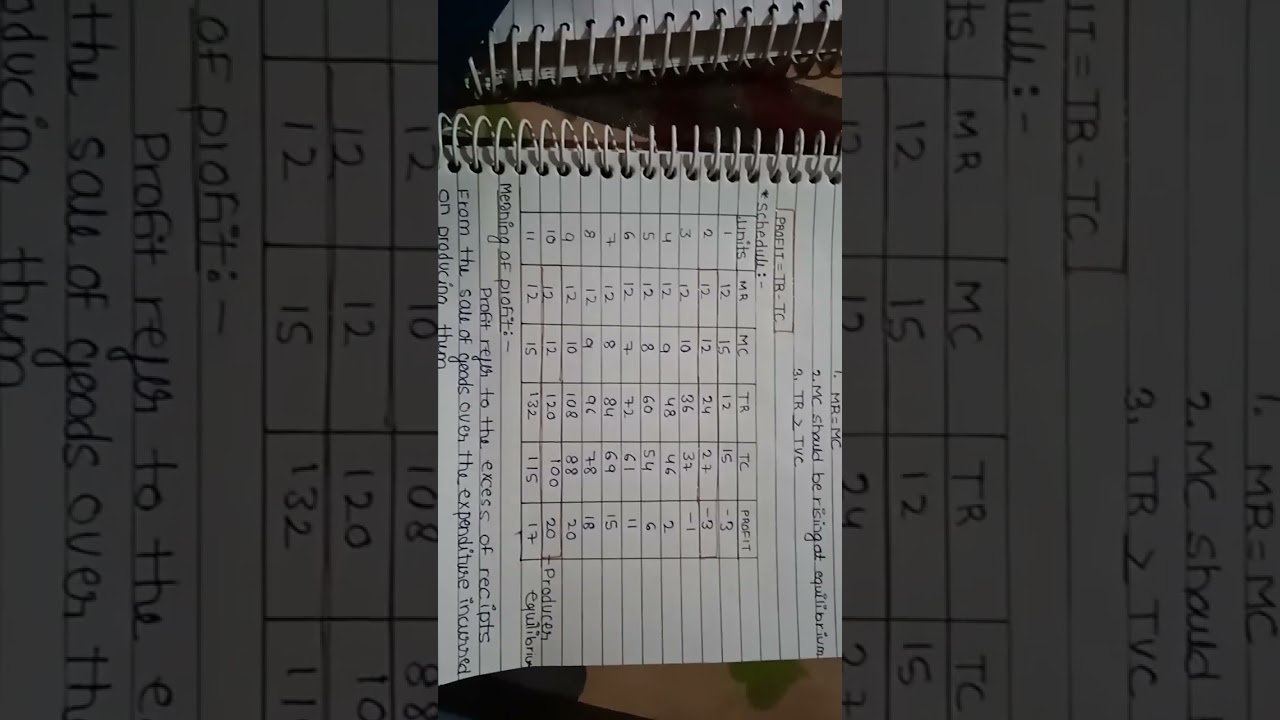 1. MR = MC
2. MC should be rising at equilibrium
3. TR > TVC
PROFIT = TR - TC
* Schedule :-
Units MR MC TR TC PROFIT
1 12 15 12 15 -3
2 12 12 24 27 -3
3 12 10 36 37 -1
4 12 9 48 46 2
5 12 8 60 54 6
6 12 7 72 61 11
7 12 8 84 69 15
8 12 9 96 78 18
9 12 10 108 88 20
10 12 12 120 100 20 → Producer
11 12 15 132 115 17 equilibriu
Meaning of profit :-
Profit refer to the excess of recipts
From the sale of goods over the expenditure incurred
on producing them